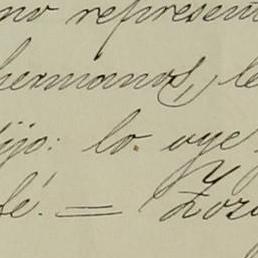 no represent
hermanos, le
dijo: lo oye
fé. = Zoz